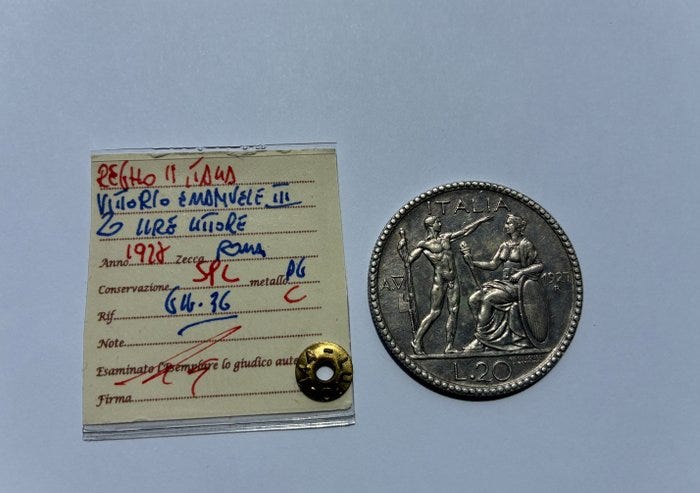 REGNO D'ITALIA
VITTORIO EMANUELE III
20 LIRE LITTORE
Anno 1928 Zecca ROMA
Conservazione SPL metallo AG
C
Rif. GIG. 36
Note
Esaminato l'esemplare lo giudico aute
Firma
ITALIA
A.VI 1927
R
L.20